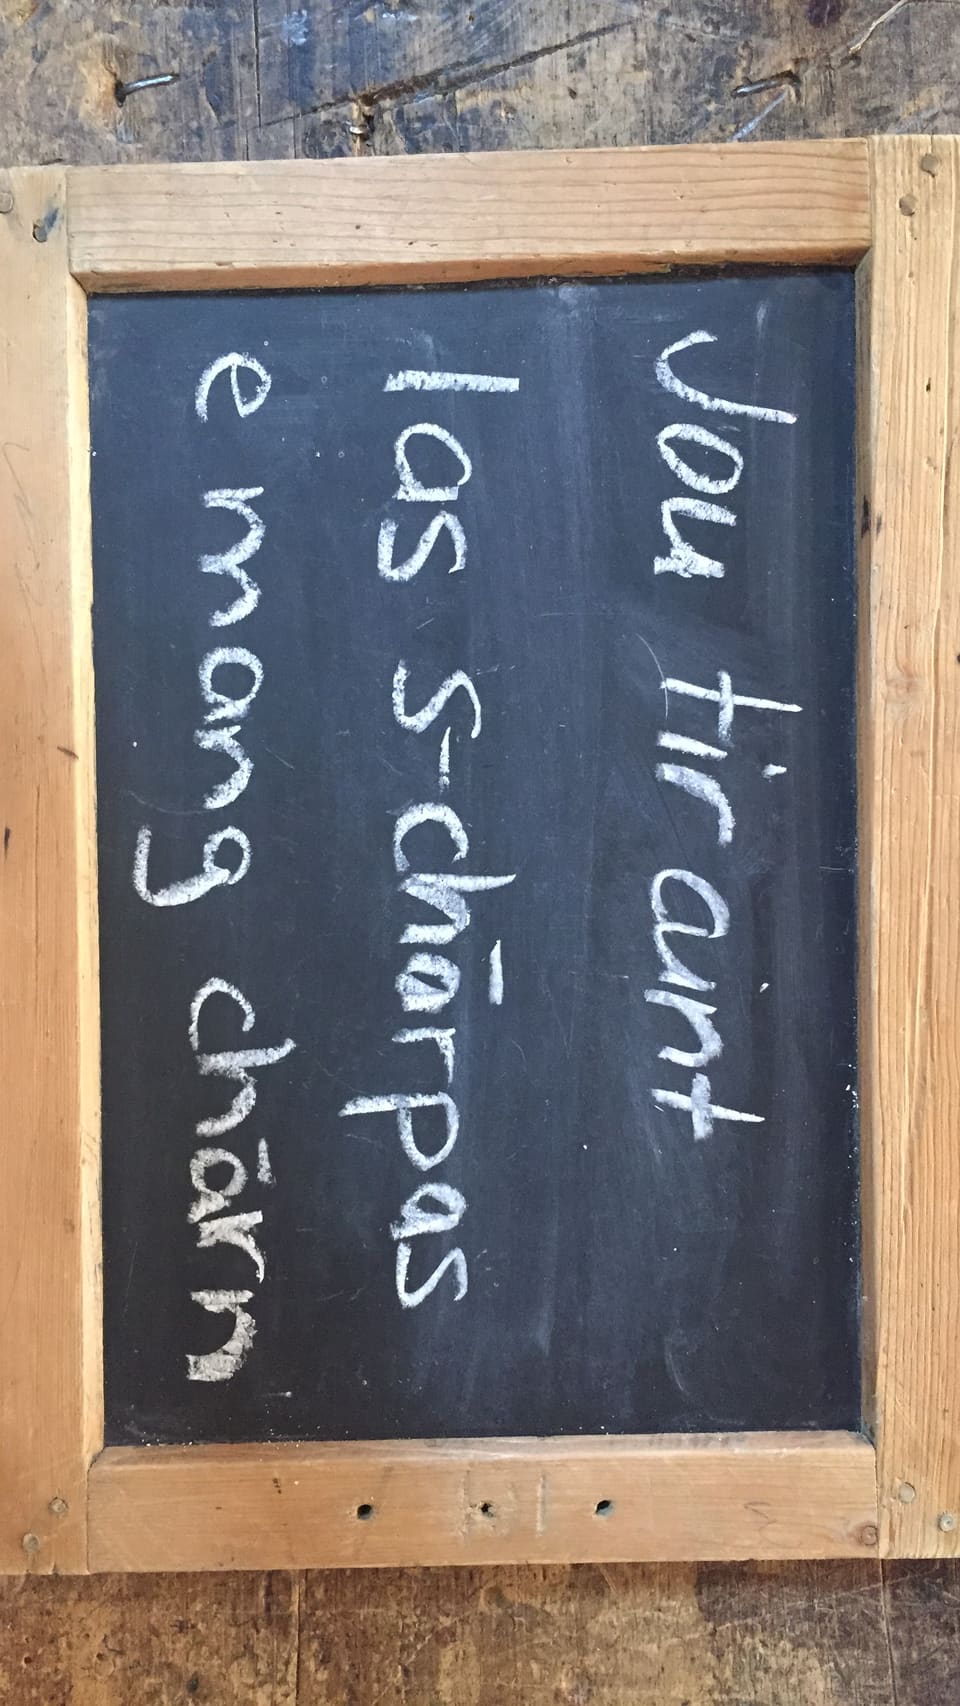 Jou tir aint
las s-chārpas
e mang chārn